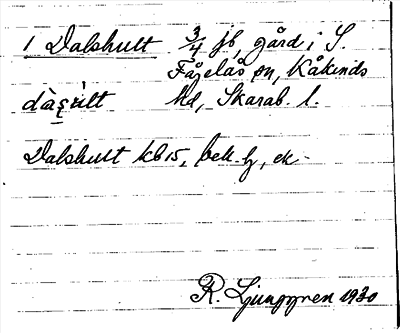 1 Dalshult 3/4 jb, gård i S.
Fågelås sn, Kåkinds
hd, Skarab. l.
Dalshult kb 15, bek. h, ek.
R. Ljunggren 1930